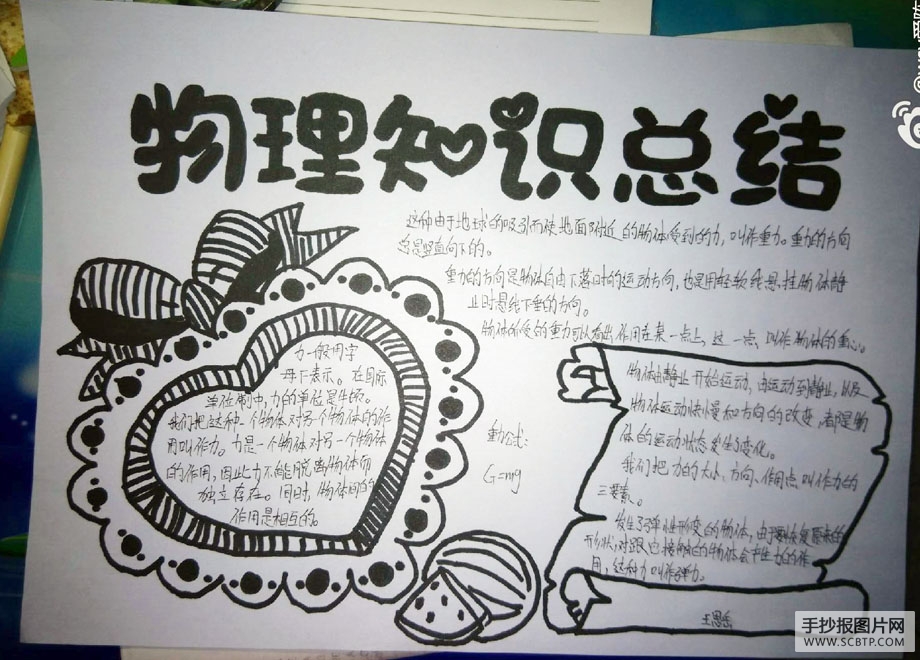 物理知识总结
这种由于地球的吸引而使地面附近的物体受到的力，叫作重力。重力的方向
总是竖直向下的。
重力的方向是物体自由下落时的运动方向，也是用轻软线悬挂物体静
止时悬线下垂的方向。
物体所受的重力可以看出作用在某一点上，这一点，叫作物体的重心。
力一般用字
母F表示。在国际
单位制中，力的单位是牛顿。
我们把这种一个物体对另个物体的作
用叫作力。力是一个物体对另一个物体
的作用，因此力不能脱离物体而
独立存在。同时，物体间的
作用是相互的。
重力公式：
G=mg
物体由静止开始运动，由运动到静止，以及
物体运动快慢和方向的改变，都是物
体的运动状态发生了变化。
我们把力的大小、方向、作用点叫作力的
三要素。
发生了弹性形变的物体，由于要恢复原来的
形状，对跟它接触的物体会产生力的作
用，这种力叫作弹力。
手抄报图片网
WWW.SCBTP.COM